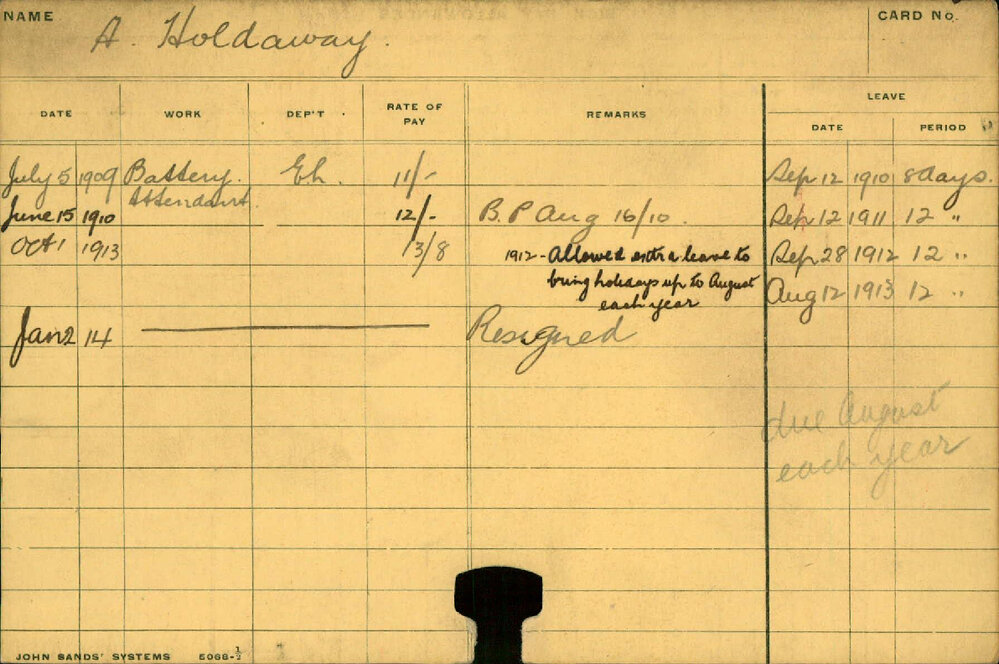 NAME A. Holdaway. CARD No.
DATE WORK DEP'T RATE OF PAY REMARKS LEAVE
DATE PERIOD
July 5 1909 Battery Eh. 11/- Sep 12 1910 8 days.
Attendant.
June 15 1910 12/- B. P Aug 16/10. Sep 12 1911 12 "
Oct 1 1913 13/8 1912 - Allowed extra leave to Sep 28 1912 12 "
bring holidays up to August
each year
Aug 12 1913 12 "
Jan 2 14 Resigned
due August
each year
JOHN SANDS' SYSTEMS 5068-½